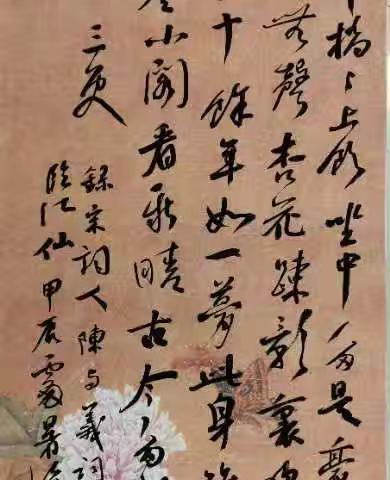 橋〻上飲坐中多是豪
無聲杏花疎影裏吹
十餘年如一夢此身雖
登小閣看新晴古今多
三更
錄宋詞人陳与義詞
臨江仙甲辰夏暑